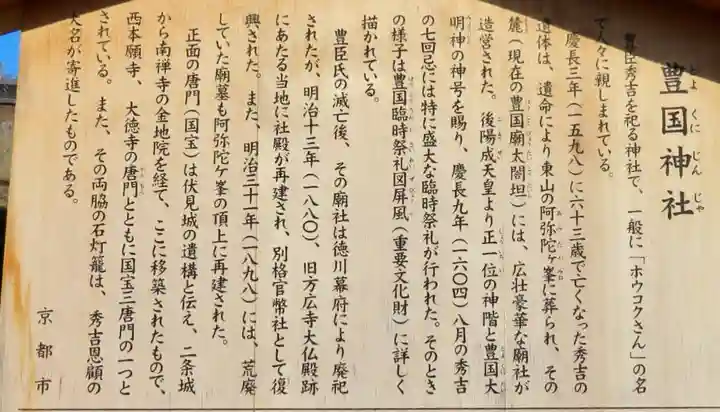 豊国神社
とよくにじんじゃ
豊臣秀吉を祀る神社で、一般に「ホウコクさん」の名
で人々に親しまれている。
慶長三年(一五九八)に六十三歳で亡くなった秀吉の
遺体は、遺命により東山の阿弥陀ヶ峯に葬られ、その
麓(現在の豊国廟太閤坦)には、広壮豪華な廟社が
造営された。後陽成天皇より正一位の神階と豊国大
明神の神号を賜り、慶長九年(一六〇四)八月の秀吉
の七回忌には特に盛大な臨時祭礼が行われた。そのとき
の様子は豊国臨時祭礼図屏風(重要文化財)に詳しく
描かれている。
豊臣氏の滅亡後、その廟社は徳川幕府により廃祀
されたが、明治十三年(一八八〇)、旧方広寺大仏殿跡
にあたる当地に社殿が再建され、別格官幣社として復
興された。また、明治三十一年(一八九八)には、荒廃
していた廟墓も阿弥陀ヶ峯の頂上に再建された。
正面の唐門(国宝)は伏見城の遺構と伝え、二条城
から南禅寺の金地院を経て、ここに移築されたもので、
西本願寺、大徳寺の唐門とともに国宝三唐門の一つと
されている。また、その両脇の石灯籠は、秀吉恩顧の
大名が寄進したものである。
京都市